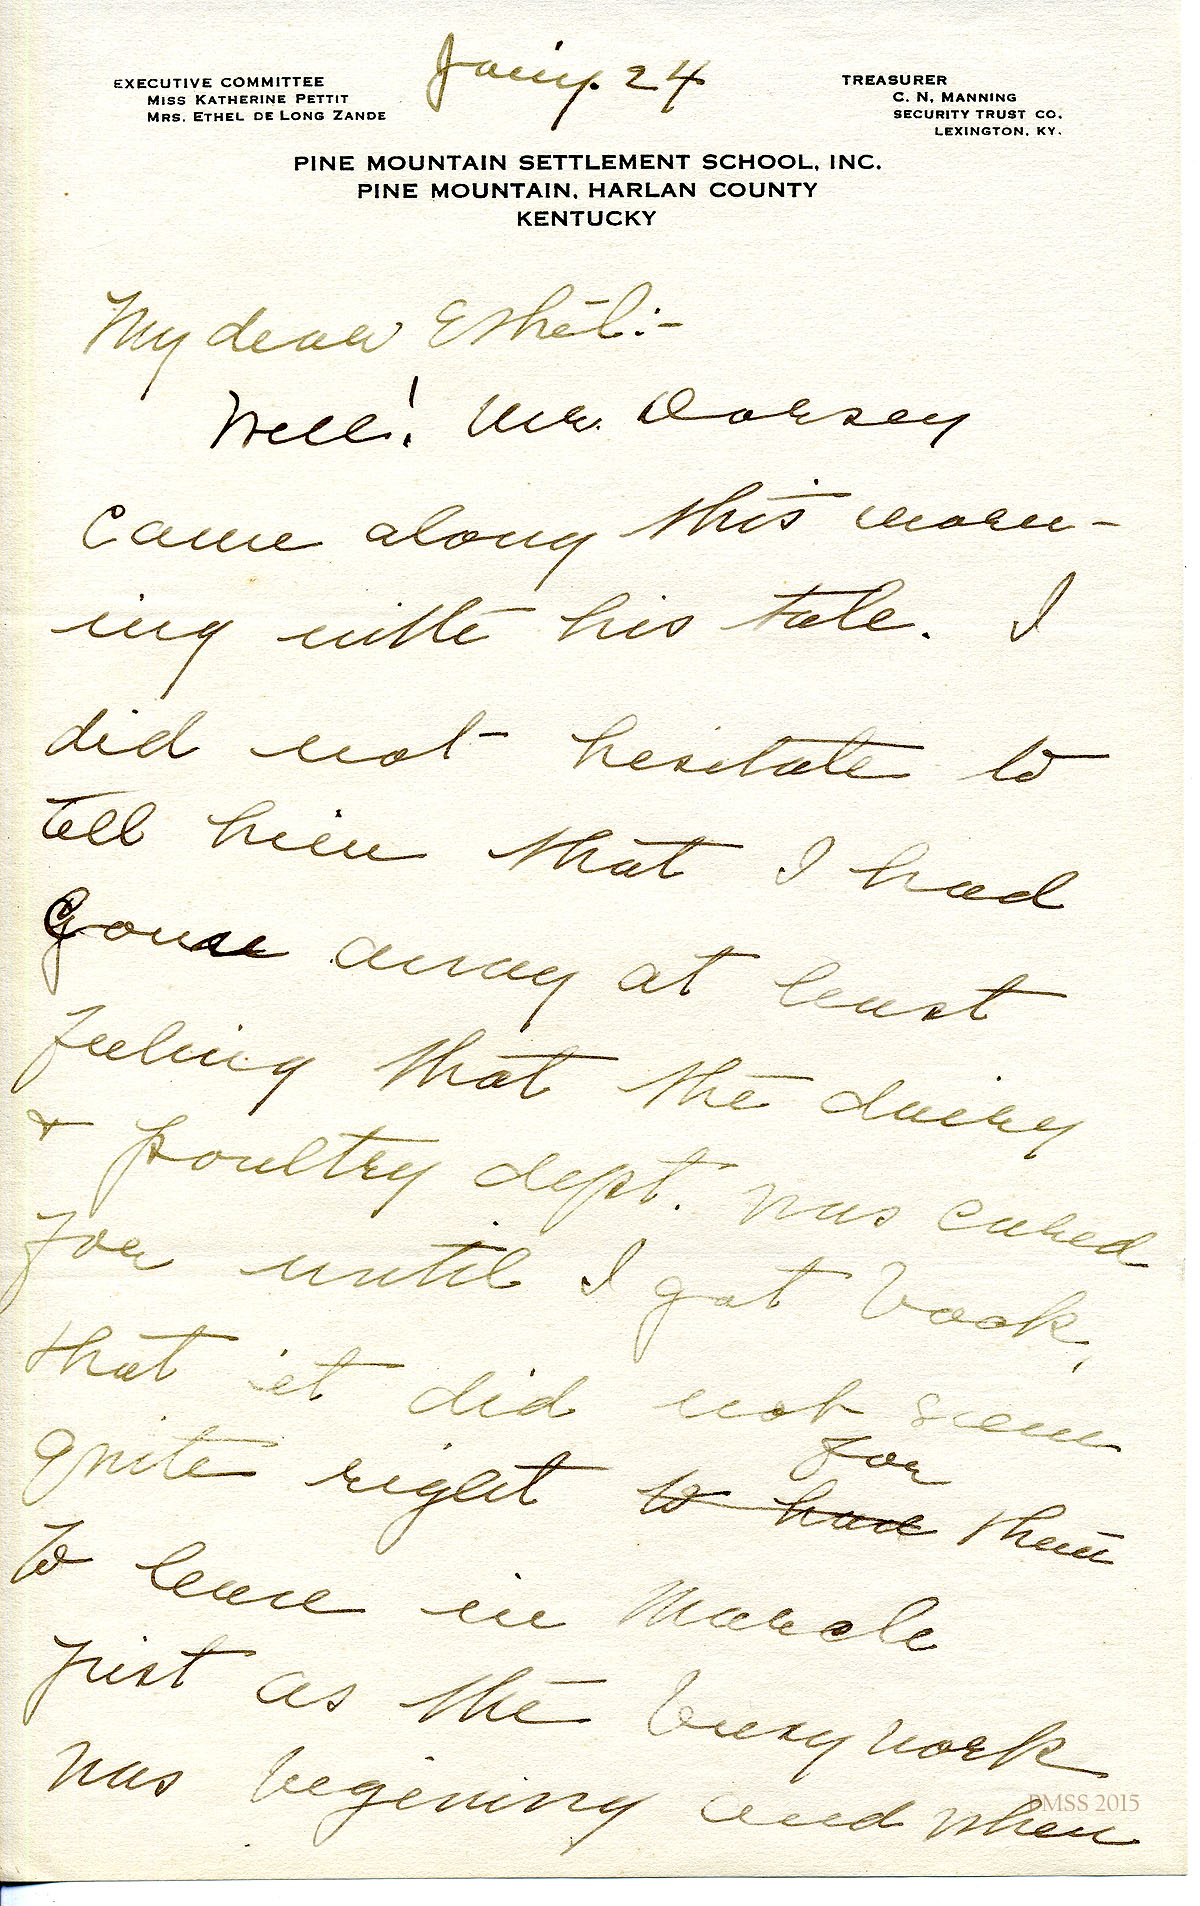 Jany. 24
EXECUTIVE COMMITTEE
MISS KATHERINE PETTIT
MRS. ETHEL DE LONG ZANDE
TREASURER
C. N. MANNING
SECURITY TRUST CO.
LEXINGTON, KY.
PINE MOUNTAIN SETTLEMENT SCHOOL, INC.
PINE MOUNTAIN, HARLAN COUNTY
KENTUCKY
My dear Ethel:-
Well! Mr. Dorsey
came along this morn-
ing with his tale. I
did not hesitate to
tell him that I had
gone away at least
feeling that the dairy
& poultry dept. was cared
for until I got back,
that it did not seem
quite right to had for them
to leave in March
just as the busy work
was begining and when
PMSS 2015